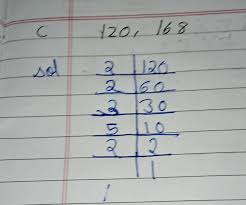 C 120, 168
sol 2 120
2 60
3 30
5 10
2 2
1